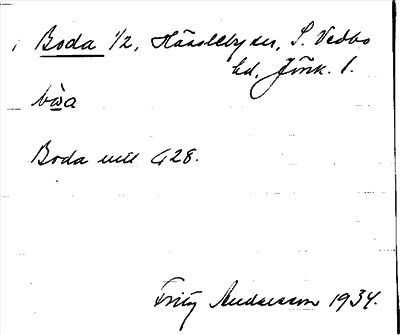 Boda 1/2, Hässleby sn, S. Vedbo
hd, Jönk. l.
bɷ̀a
Boda
Fritz Andersson 1934.